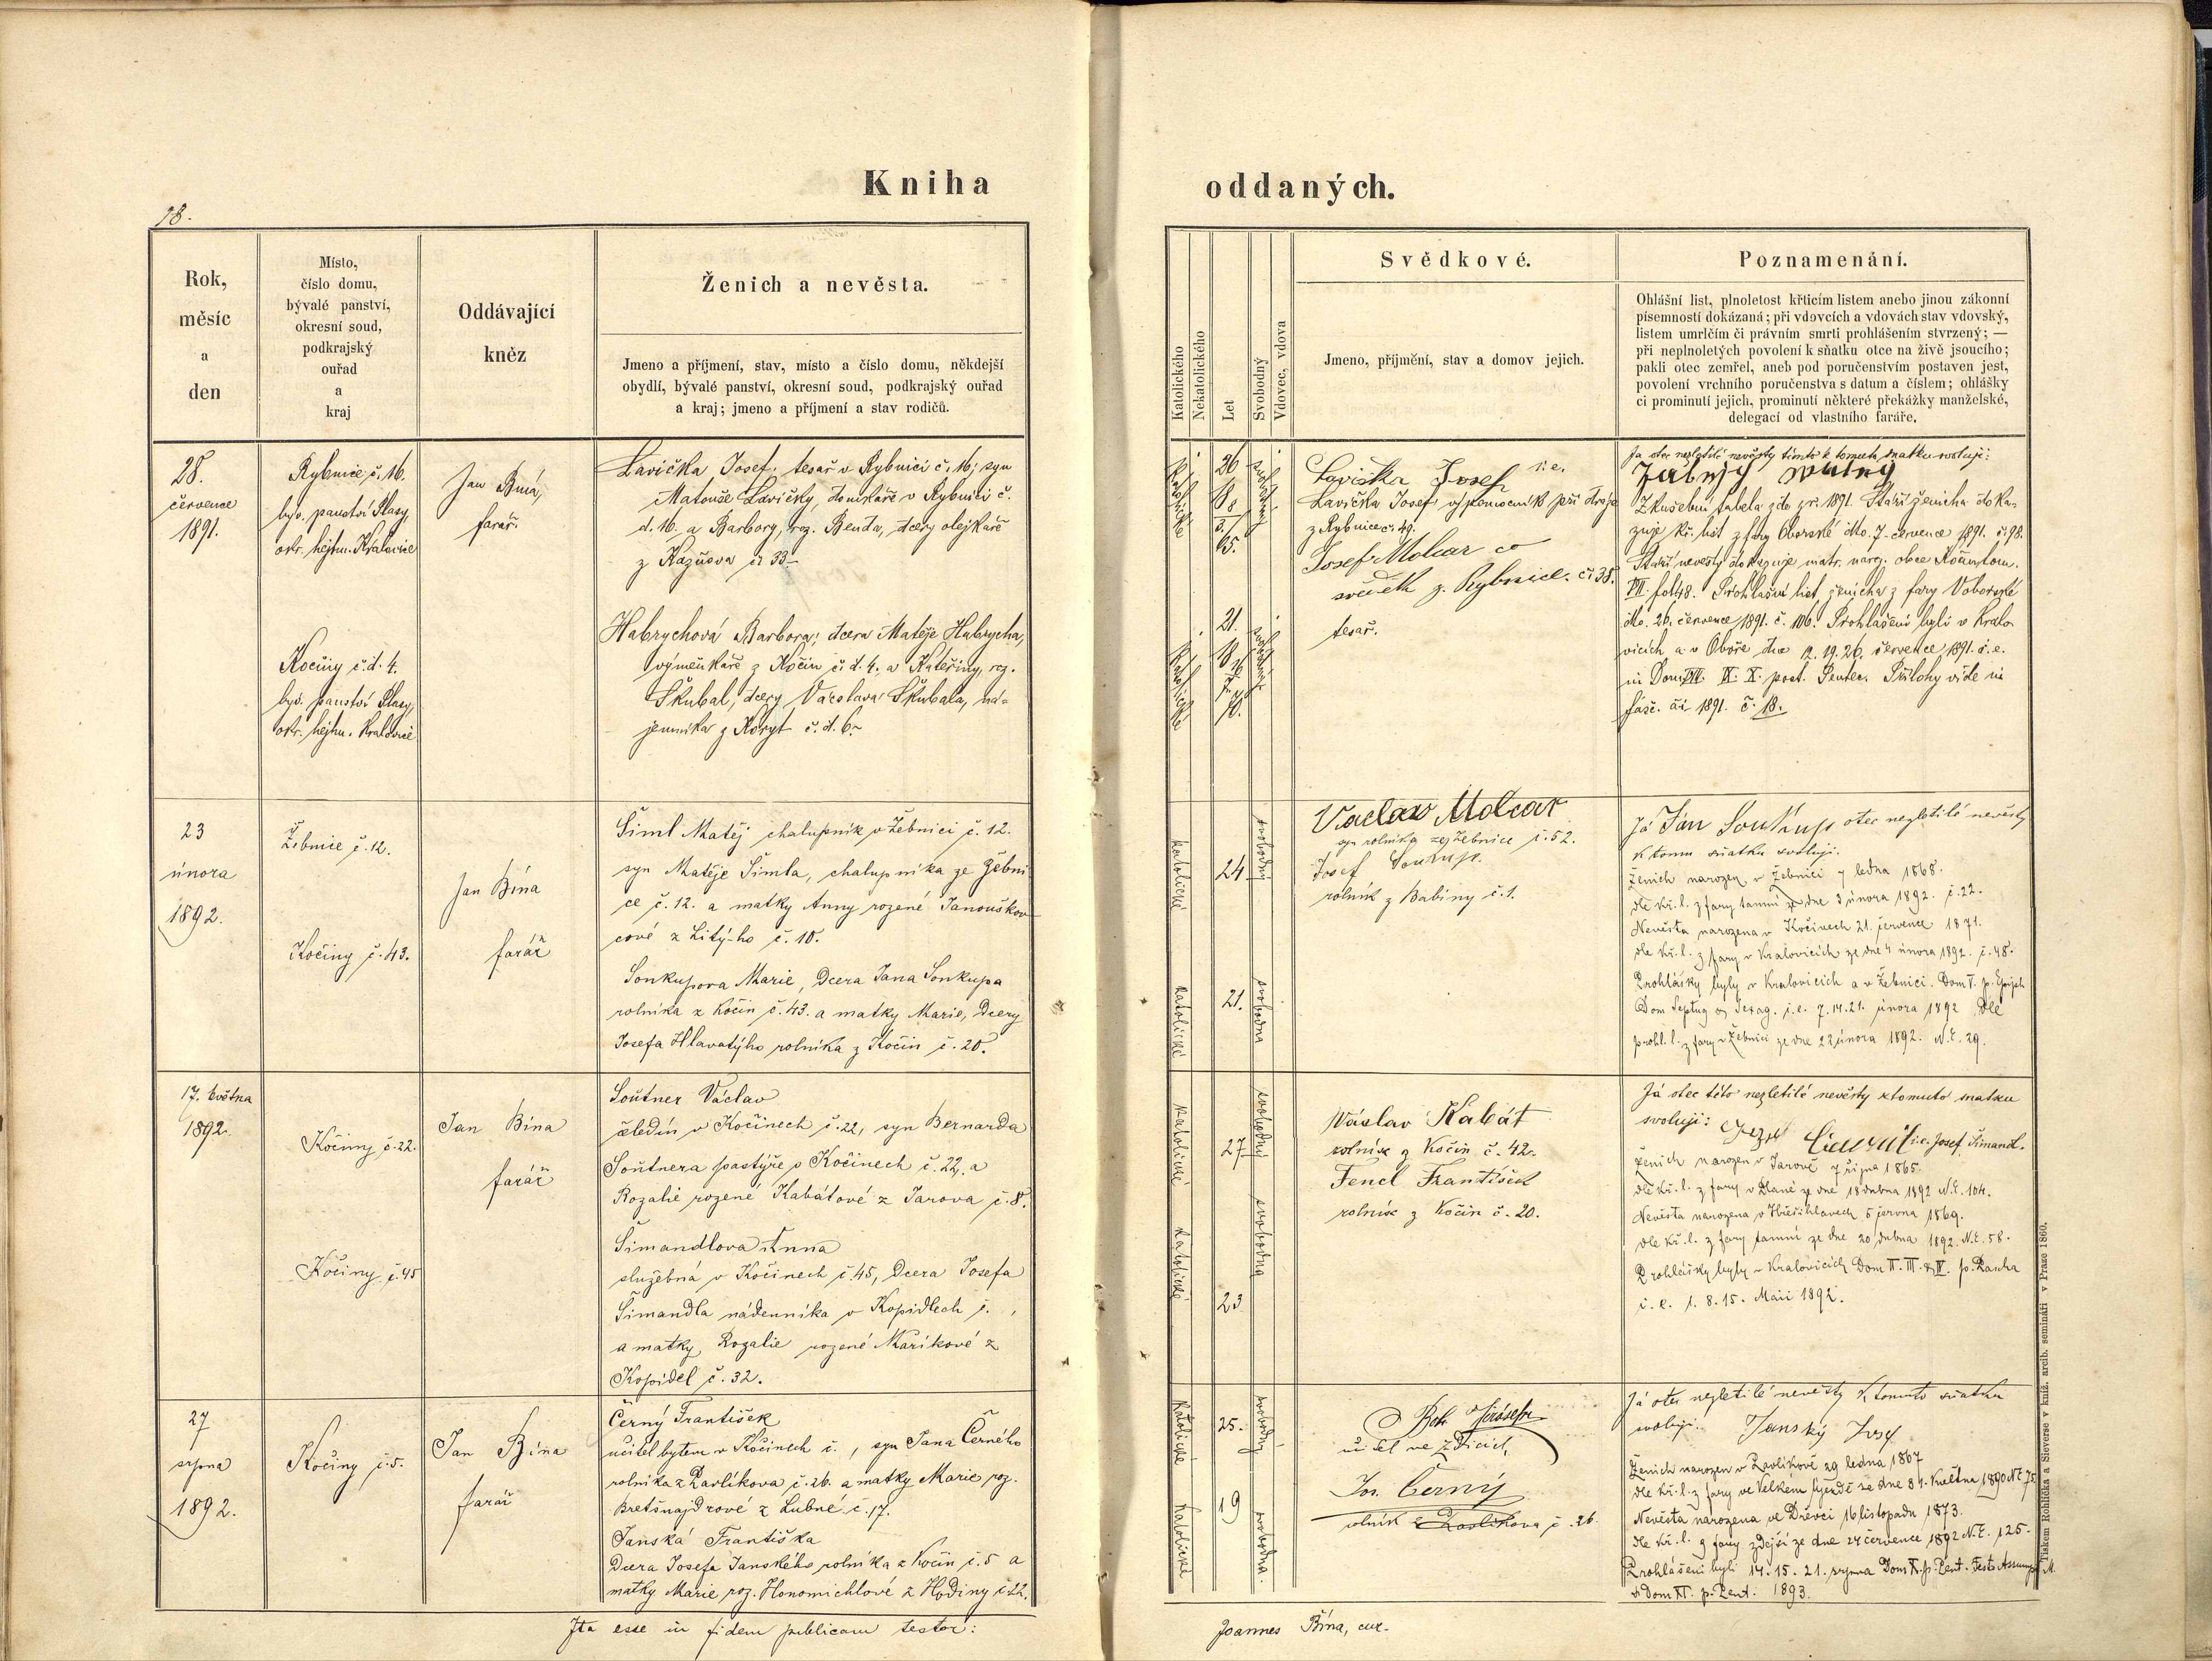 Kniha
18.
Rok,
měsíc
a
den
Místo,
číslo domu,
bývalé panství,
okresní soud,
podkrajský
ouřad
a
kraj
Oddávající
kněz
Ženich a nevěsta.
Jmeno a příjmení, stav, místo a číslo domu, někdejší
obydlí, bývalé panství, okresní soud, podkrajský ouřad
a kraj; jmeno a příjmení a stav rodičů.
28.
července
1891.
Rybnice č. 16.
býv. panství Plasy,
okr. hejtm. Kralovice
Jan Bína,
farář.
Lavička Josef, tesař v Rybnici č. 16; syn
Matouše Lavičky, domkáře v Rybnici č.
d. 16. a Barbory, roz. Benda, dcery olejkáře
z Kaznova č. 33.
Kočiny č. d. 4.
býv. panství Plasy,
okr. hejtm. Kralovice
Habrychová Barbora; dcera Matěje Habrycha,
výměnkáře z Kočin č. d. 4. a Kateřiny, roz.
Škubal, dcery Václava Škubala, ná-
jemníka z Koryt č. d. 6.
23
února
1892.
Žebnice č. 12.
Kočiny č. 43.
Jan Bína
farář
Šiml Matěj chalupník v Žebnici č. 12.
syn Matěje Šimla, chalupníka ze Žebni
ce č. 12. a matky Anny rozené Janouškov
cové z Litý-ho č. 10.
Soukupova Marie, Dcera Jana Soukupa
rolníka z Kočin č. 43. a matky Marie, Dcery
Josefa Hlavatýho rolníka z Kočin č. 20.
17. května
1892.
Kočiny č. 22.
Kočiny č. 45
Jan Bína
farář
Soutner Václav
čledín v Kočinech č. 22, syn Bernarda
Soutnera pastýře v Kočinech č. 22. a
Rozalie rozené Kabátové z Jarova č. 8.
Šimandlova Anna
služebná v Kočinech č. 45, Dcera Josefa
Šimandla nádenníka v Kopidlech č. ,
a matky Rozalie rozené Maříkové z
Kopidel č. 32.
27
srpna
1892.
Kočiny č. 5.
Jan Bína
farář
Černý František
učitel bytem v Kočinech č. , syn Jana Černého
rolníka z Pavlíkova č. 26. a matky Marie roz.
Bretšnajdrové z Lubné č. 17.
Janská Františka
Dcera Josefa Janského rolníka z Kočin č. 5 a
matky Marie roz. Honomichlové z Hodiny č. 22.
Ita esse in fidem publicam testor:
oddaných.
Katolického
Nekatolického
Let
Svobodný
Vdovec, vdova
Svědkové.
Jmeno, příjmění, stav a domov jejich.
Poznamenání.
Ohlášní list, plnoletost křticím listem anebo jinou zákonní
písemností dokázaná; při vdovcích a vdovách stav vdovský,
listem umrlčím či právním smrti prohlášením stvrzený; —
při neplnoletých povolení k sňatku otce na živě jsoucího;
pakli otec zemřel, aneb pod poručenstvím postaven jest,
povolení vrchního poručenstva s datum a číslem; ohlášky
ci prominutí jejich, prominutí některé překážky manželské,
delegací od vlastního faráře.
katolické
26
svobodný
Lavička Josef i. e.
Lavička Josef
z Rybnice č. 49.
Josef Molcar co
svědek z. Rybnice. č. 38.
tesař.
katolické
21.
Ja otec nezletilé nevěsty tímto k tomuto sňatku svoluji:
Zkušební tabela z r. 1891. Stáří ženicha doka-
zuje kř. list z fary Oborské dto. 7. července 1891. č. 98.
Stáří nevěsty dokazuje matr. naroz. obce Kočin tom.
VII. fol 48. Prohlašní list ženicha z fary Voborské
dto. 26. července 1891. č. 106. Prohlášení byli v Kralo-
vicích a v Oboře dne 12. 19. 26. července 1891. i. e.
in Dom VIII. IX. X. post. Pentec. Přílohy vide in
fasc. ai 1891. č. 18.
katolické
24
svobodný
katolické
21.
svobodna
Vaclav Molcar
syn rolníka ze Žebnice č. 52.
Josef Soukup.
rolník z Babiny č. 1.
Já Jan Soukup otec nezletilé nevěsty
k tomu sňatku svoluji.
Ženich narozen v Žebnici 7 ledna 1868.
dle kř. l. z fary tamní ze dne 3 února 1892. č. 22.
Nevěsta narozena v Kočinech 21. července 1871.
dle kř. l. z fary v Kralovicích ze dne 4 února 1892. č. 48.
Prohlášky byly v Kralovicích a v Žebnici. Dom V. p. Epiph
Dom Septug Sexag. i. e. 7. 14. 21. února 1892 Dle
prohl. l. z fary v Žebnici ze dne 22 února 1892. N. č. 29.
katolické
27
svobodný
katolické
23
svobodna
Václav Kabát
rolník z Kočin č. 42.
Fencl František
rolník z Kočin č. 20.
Já otec této nezletilé nevěsty k tomuto sňatku
svoluji: i. e. Josef Šimandl.
Ženich narozen v Jarově 7 října 1865.
dle kř. l. z fary v Plané ze dne 18 dubna 1892 N. č. 104.
Nevěsta narozena v Hřešihlavech 5 června 1869.
dle kř. l. z fary tamní ze dne 20 dubna 1892. N. č. 58.
Prohlášky byly v Kralovicích Dom II. III. & IV. p. Pascha
i. e. 1. 8. 15. Maii 1892.
katolické
25.
svobodný
katolické
19
svobodna.
učitel ve Zdicích
Jos. Černý
rolník z Pavlíkova č. 26.
Já otec nezletilé nevěsty k tomuto sňatku
svoluji. Janský Josef
Ženich narozen v Pavlíkově 29 ledna 1867
dle kř. l. z fary ve Velkém Újezdě ze dne 31. května 1890 N č 75.
Nevěsta narozena ve Dřevci 16 listopadu 1873.
dle kř. l. z fary zdejší ze dne 24 července 1892 N. č. 125.
Prohlášení byli 14. 15. 21. srpna Dom X. p. Pent. Festo Assump. M.
& Dom XI. p. Pent. 1893.
Joannes Bína, cur.
Tiskem Rohlíčka a Sieverse v kníž. arcib. semináři v Praze 1860.